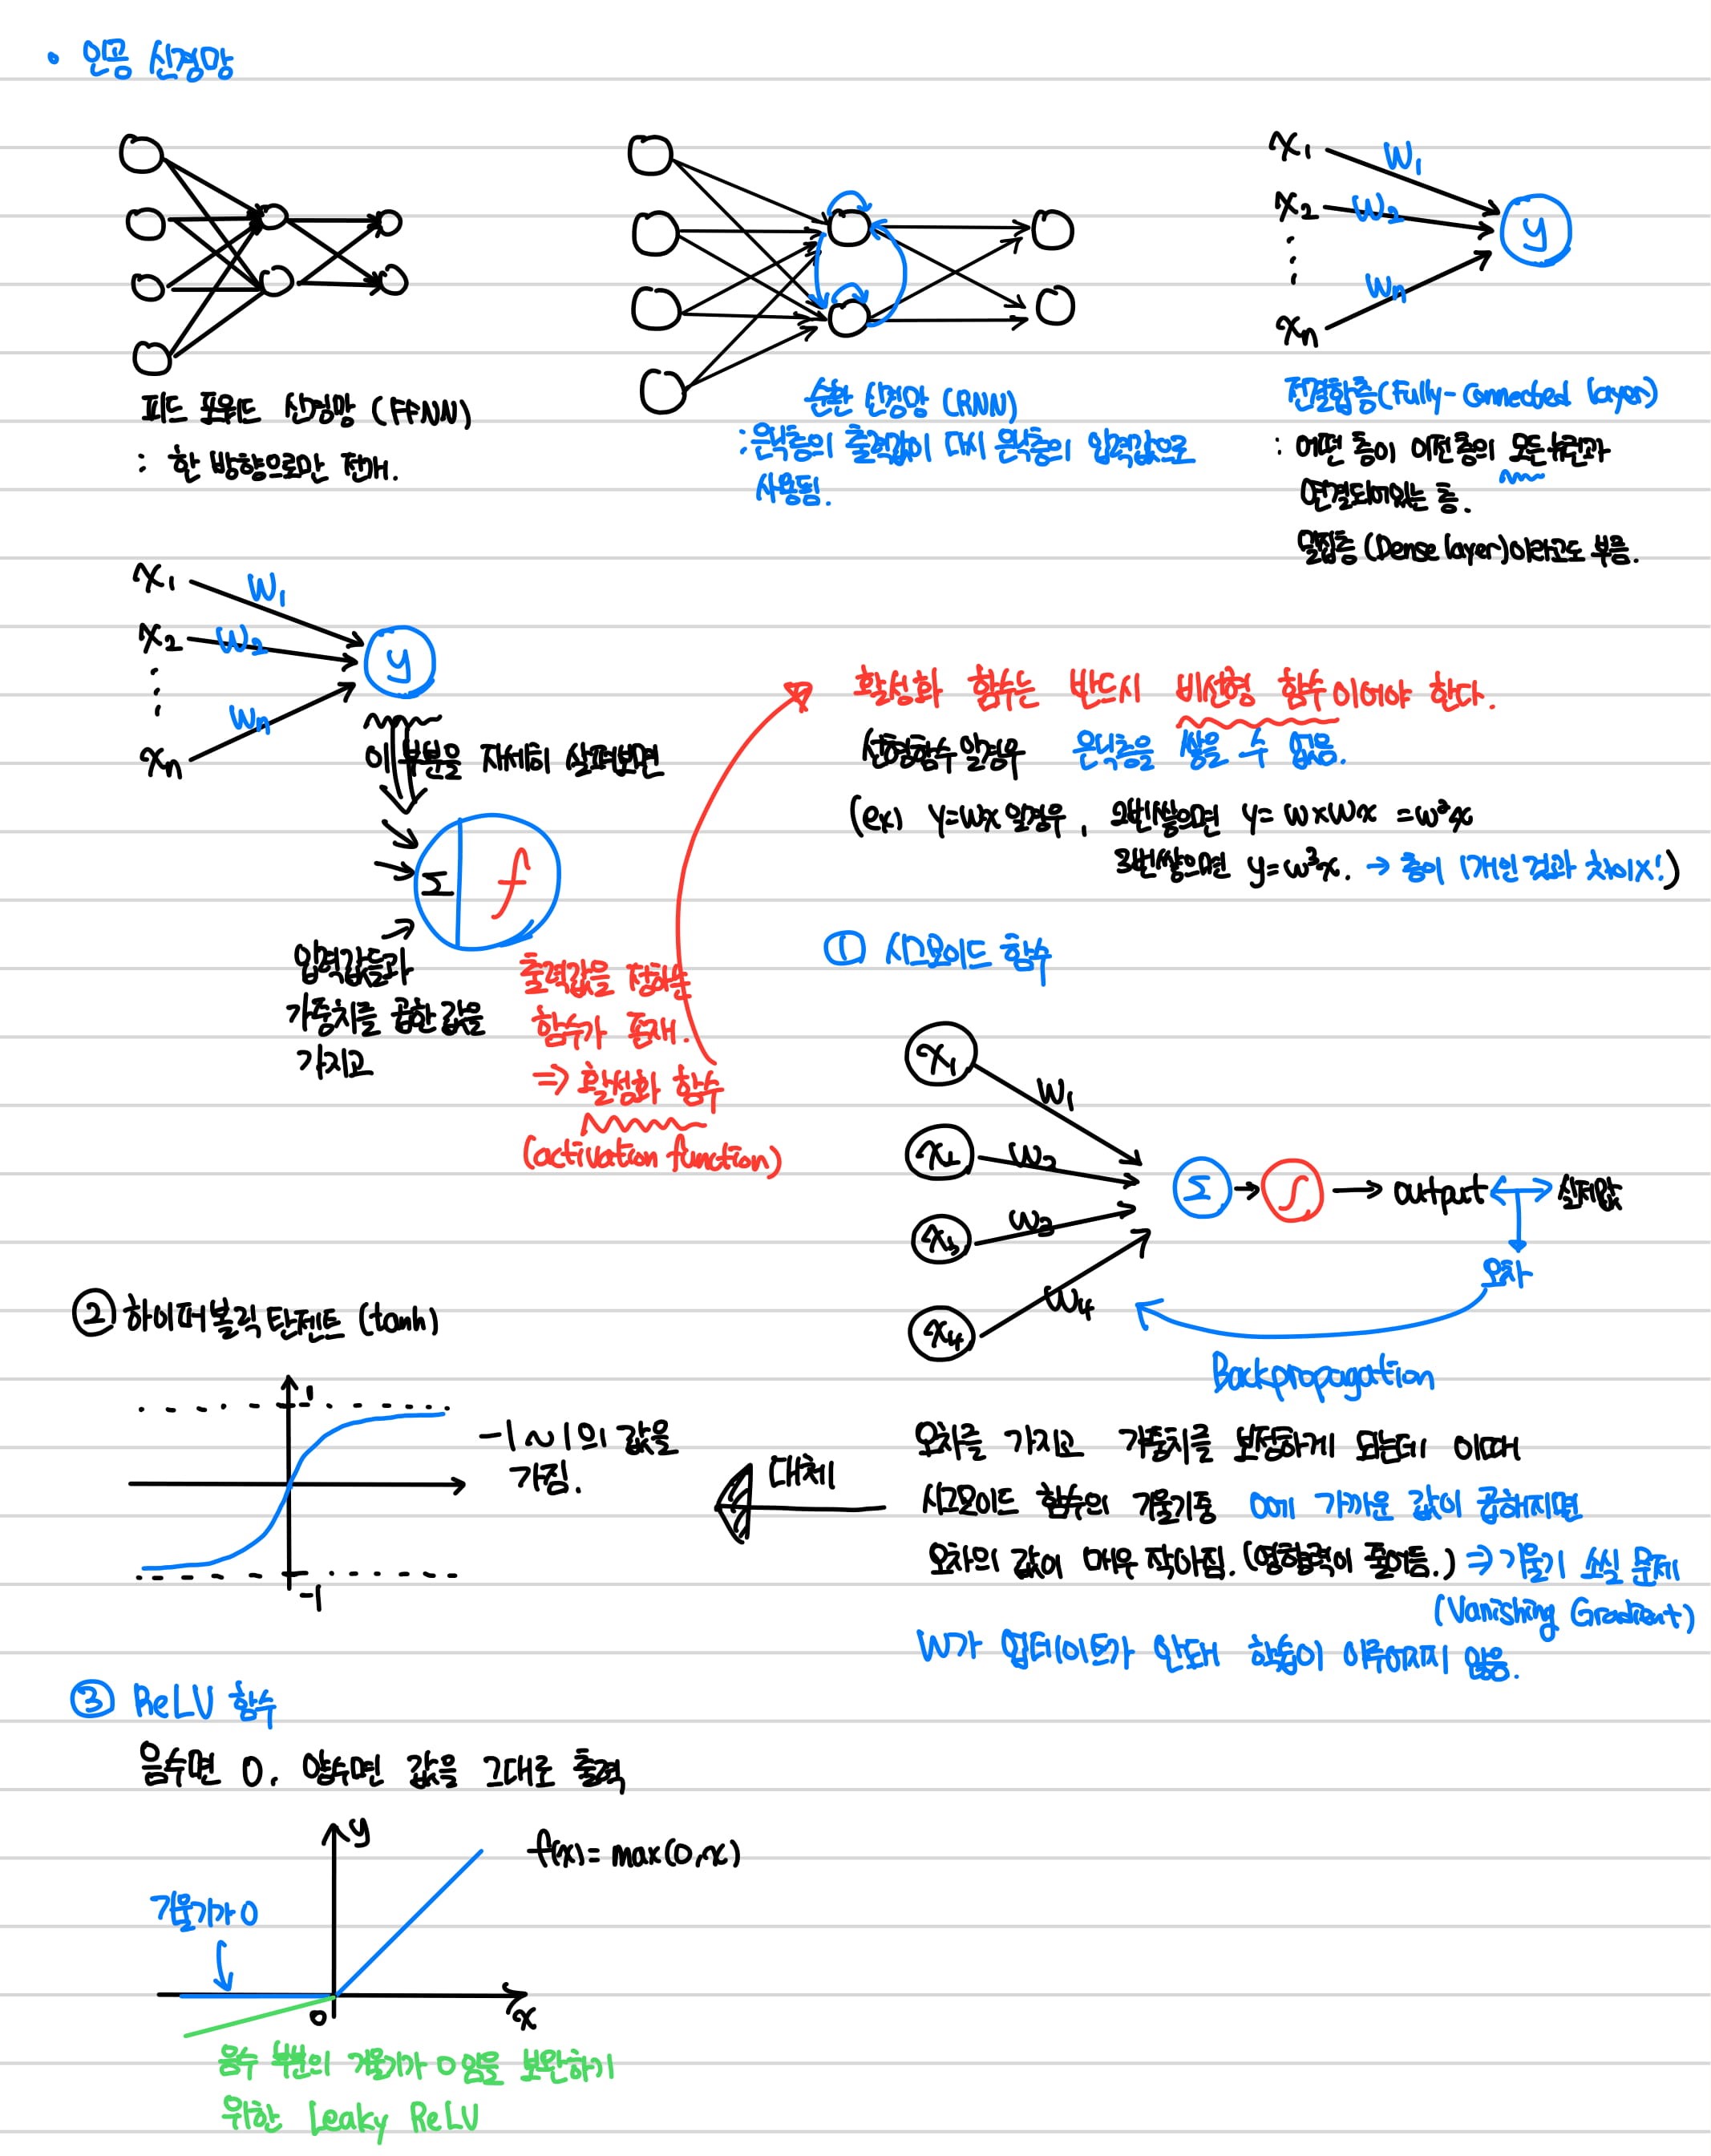 • 인공 신경망
피드 포워드 신경망 (FFNN)
: 한 방향으로만 전개.
순환 신경망 (RNN)
: 은닉층의 출력값이 다시 은닉층의 입력값으로
사용됨.
x₁ w₁
x₂ w₂
⋮
xₙ wₙ
y
전결합층 (Fully-Connected layer)
: 어떤 층이 이전 층의 모든 뉴런과
연결되어있는 층.
밀집층 (Dense layer)이라고도 부름.
x₁ w₁
x₂ w₂
⋮
xₙ wₙ
y
이 부분을 자세히 살펴보면
Σ f
입력값들과
가중치를 곱한 값을
가지고
출력값을 정하는
함수가 존재.
⇒ 활성화 함수
(activation function)
활성화 함수는 반드시 비선형 함수이어야 한다.
선형함수일경우 은닉층을 쌓을 수 없음.
(ex) y=wx일경우, 2번쌓으면 y= w×wx = w²x
3번쌓으면 y=w³x. → 층이 1개인 것과 차이X!)
① 시그모이드 함수
x₁ w₁
x₂ w₂
x₃ w₃
x₄ w₄
Σ → ∫ → output ↔ 실제값
오차
Backpropagation
오차를 가지고 가중치를 보정하게 되는데 이때
시그모이드 함수의 기울기중 0에 가까운 값이 곱해지면
오차의 값이 매우 작아짐. (영향력이 줄어듦.) ⇒ 기울기 소실 문제
(Vanishing Gradient)
W가 업데이트가 안돼 학습이 이루어지지 않음.
대체
② 하이퍼볼릭탄젠트 (tanh)
1
-1
-1~1의 값을
가짐.
③ ReLU 함수
음수면 0, 양수면 값을 그대로 출력
y
f(x) = max(0,x)
기울기가 0
0
x
음수 부분의 기울기가 0임을 보완하기
위한 Leaky ReLU